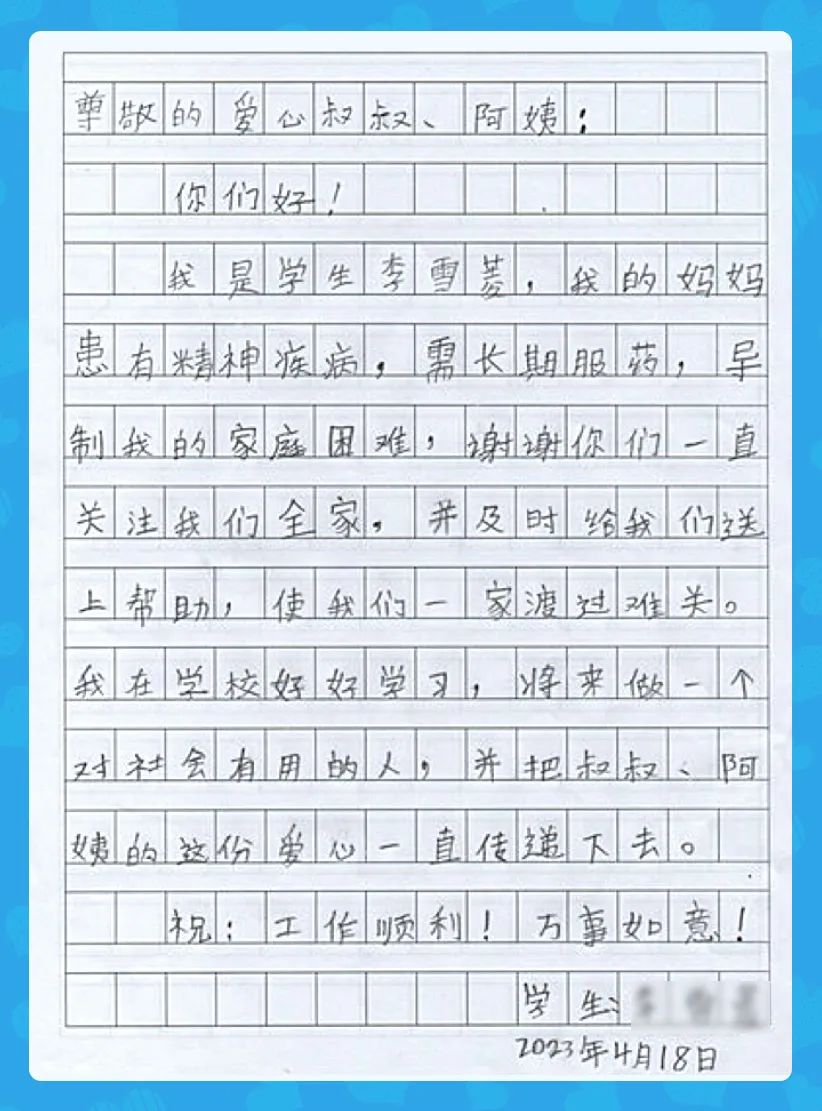 尊敬的爱心叔叔、阿姨:
你们好!
我是学生李雪菱,我的妈妈
患有精神疾病,需长期服药,导
制我的家庭困难,谢谢你们一直
关注我们全家,并及时给我们送
上帮助,使我们一家渡过难关。
我在学校好好学习,将来做一个
对社会有用的人,并把叔叔、阿
姨的这份爱心一直传递下去。
祝:工作顺利!万事如意!
学生:
2023年4月18日